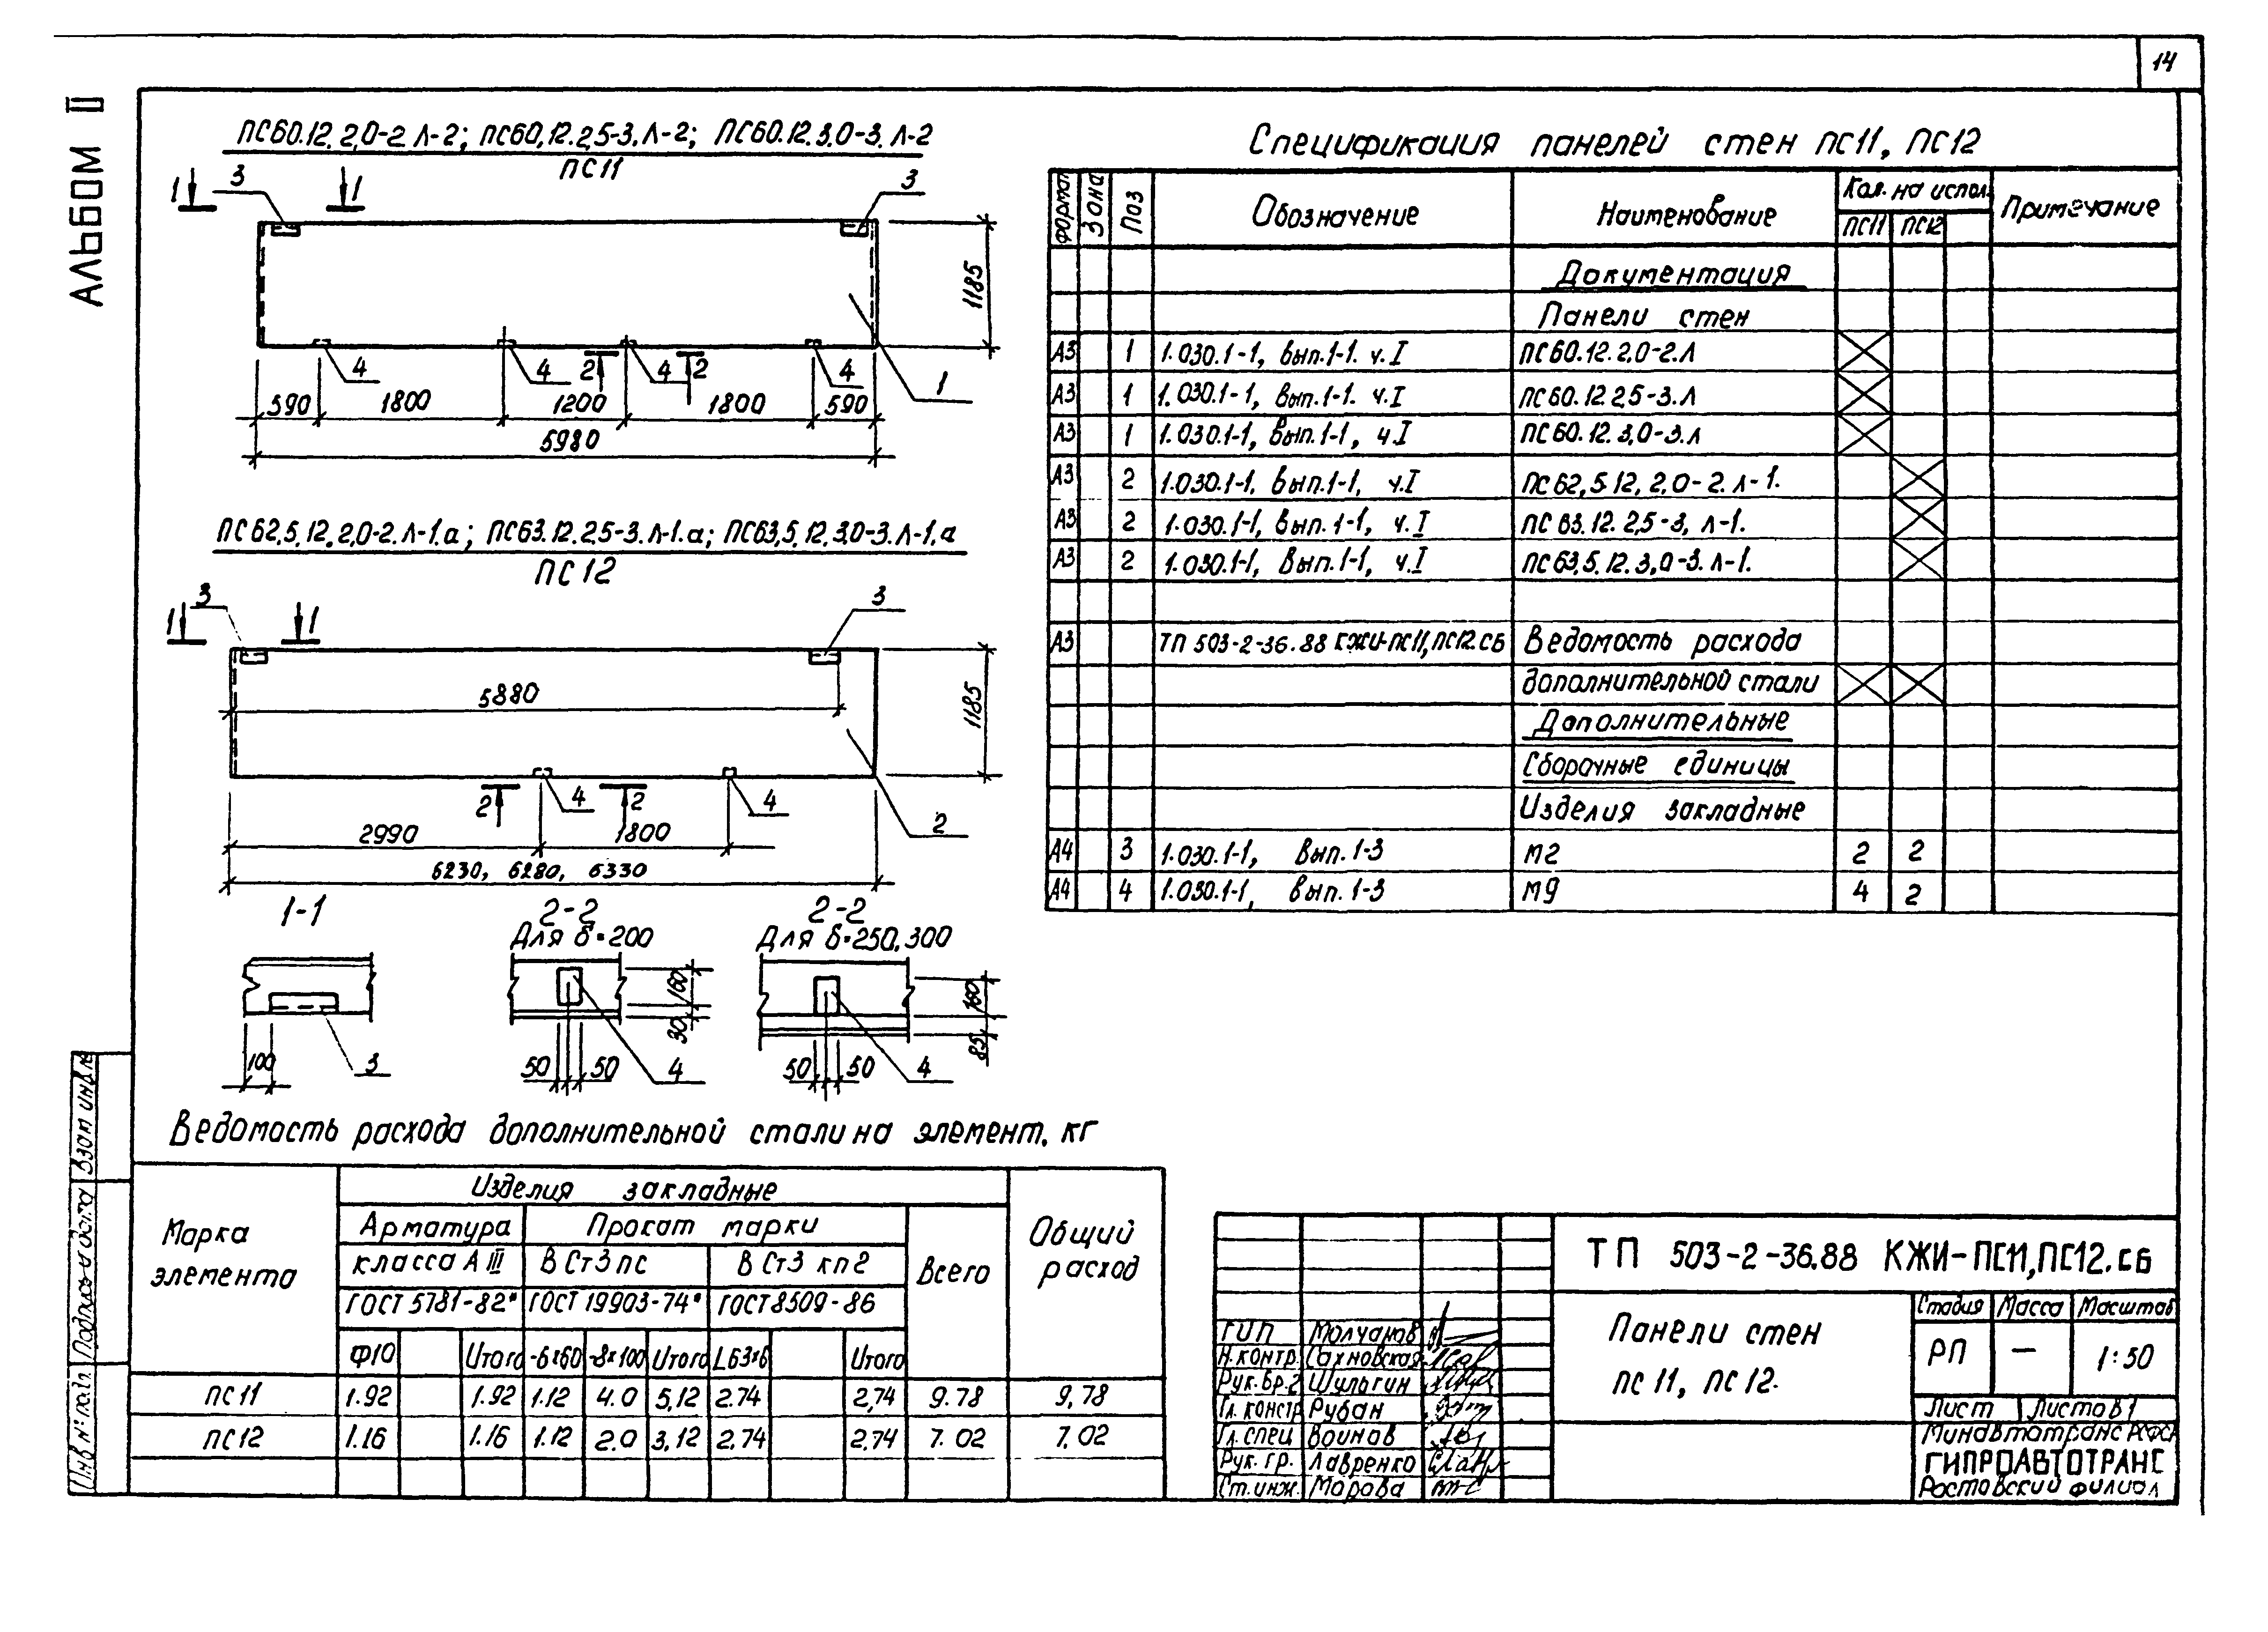 14
АЛЬБОМ II
ПС60.12.2,0-2.Л-2; ПС60.12.2,5-3.Л-2; ПС60.12.3,0-3.Л-2
ПС11
1 3 1 3
1185
4 4 2 4 2 4 1
590 1800 1200 1800 590
5980
ПС62,5.12.2,0-2.Л-1.а; ПС63.12.2,5-3.Л-1.а; ПС63,5.12.3,0-3.Л-1.а
ПС12
1 3 1 3
5880
1185
2 4 2 4 2
2990 1800
6230, 6280, 6330
1-1
100 3
2-2
Для б=200
160
30
50 50 4
2-2
Для б=250,300
160
85
50 50 4
Спецификация панелей стен ПС11, ПС12
Формат Зона Поз Обозначение Наименование Кол. на испол. Примечание
ПС11 ПС12
Документация
Панели стен
А3 1 1.030.1-1, вып.1-1. ч.I ПС60.12.2,0-2.Л
А3 1 1.030.1-1, вып.1-1. ч.I ПС60.12.2,5-3.Л
А3 1 1.030.1-1, вып.1-1, ч.I ПС60.12.3,0-3.Л
А3 2 1.030.1-1, вып.1-1, ч.I ПС62,5.12,2,0-2.Л-1.
А3 2 1.030.1-1, вып.1-1, ч.I ПС63.12.2,5-3,Л-1.
А3 2 1.030.1-1, вып.1-1, ч.I ПС63,5.12.3,0-3.Л-1.
А3 ТП 503-2-36.88 КЖИ-ПС11,ПС12.СБ Ведомость расхода
дополнительной стали
Дополнительные
Сборочные единицы
Изделия закладные
А4 3 1.030.1-1, вып.1-3 М2 2 2
А4 4 1.030.1-1, вып.1-3 М9 4 2
Ведомость расхода дополнительной стали на элемент, кг
Марка элемента Изделия закладные Общий расход
Арматура Прокат марки Всего
класса А III ВСт3пс ВСт3 кп2
ГОСТ 5781-82* ГОСТ 19903-74* ГОСТ 8509-86
Ф10 Итого -6х60 -8х100 Итого L63х6 Итого
ПС11 1.92 1.92 1.12 4.0 5,12 2.74 2,74 9.78 9,78
ПС12 1.16 1.16 1.12 2.0 3,12 2,74 2.74 7.02 7,02
ТП 503-2-36.88 КЖИ-ПС11,ПС12.СБ
ГИП Молчанов
Н.контр. Сахновская
Рук.бр.2 Шульгин
Гл. констр Рубан
Гл. спец Воинов
Рук. гр. Лавренко
Ст.инж. Морова
Панели стен
ПС 11, ПС 12.
Стадия Масса Масштаб
РП — 1:50
Лист Листов 1
Минавтотранс РСФСР
ГИПРОАВТОТРАНС
Ростовский филиал
Взам инв.№
Подпись и дата
Инв № подл.